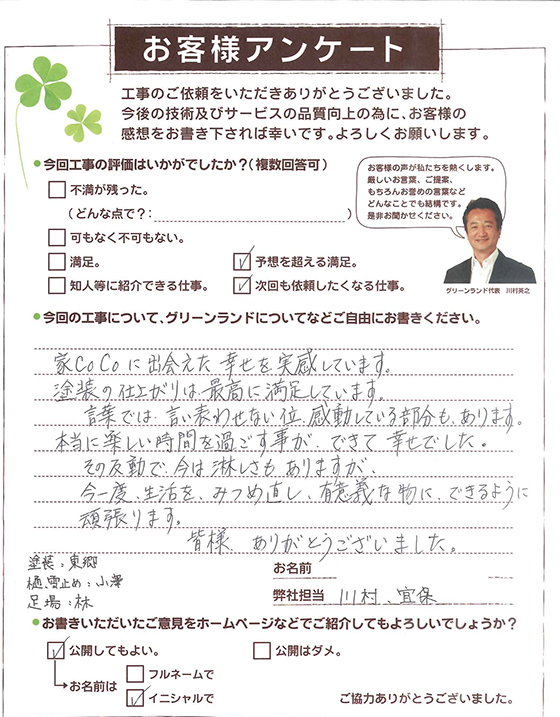 お客様アンケート
工事のご依頼をいただきありがとうございました。
今後の技術及びサービスの品質向上の為に、お客様の
感想をお書き下されば幸いです。よろしくお願いします。
●今回工事の評価はいかがでしたか？（複数回答可）
不満が残った。
（どんな点で？：　）
可もなく不可もない。
満足。
予想を超える満足。
知人等に紹介できる仕事。
次回も依頼したくなる仕事。
お客様の声が私たちを熱くします。
厳しいお言葉、ご提案、
もちろんお誉めの言葉など
どんなことでも結構です。
是非お聞かせください。
グリーンランド代表　川村英之
●今回の工事について、グリーンランドについてなどご自由にお書きください。
家CoCoに出会えた幸せを実感しています。
塗装の仕上がりは、最高に満足しています。
言葉では、言い表わせない位、感動している部分も、あります。
本当に楽しい時間を過ごす事が、できて幸せでした。
その反動で、今は淋しさも、ありますが、
今一度、生活を、みつめ直し、有意義な物に、できるように
頑張ります。
皆様　ありがとうございました。
塗装：東郷
樋、雪止め：小澤
足場：林
お名前
弊社担当　川村、宜保
●お書きいただいたご意見をホームページなどでご紹介してもよろしいでしょうか？
公開してもよい。
公開はダメ。
お名前は
フルネームで
イニシャルで
ご協力ありがとうございました。